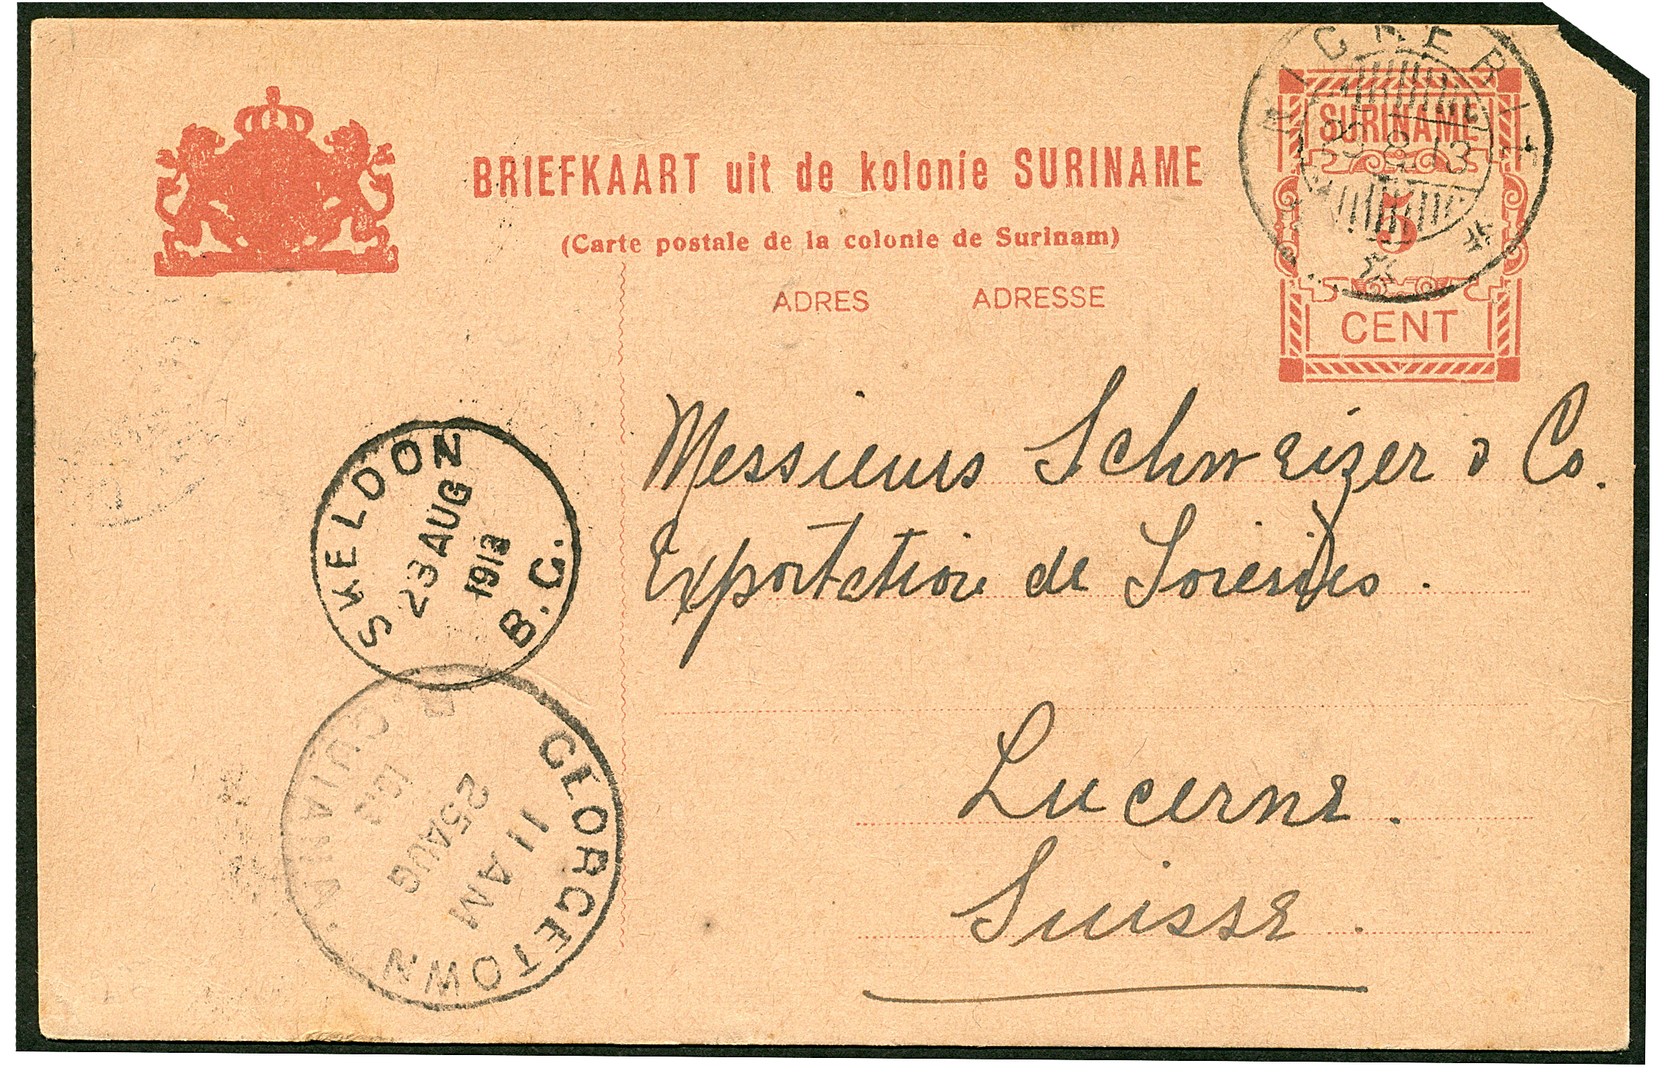 BRIEFKAART uit de kolonie SURINAME
(Carte postale de la colonie de Surinam)
ADRES ADRESSE
NICKERIE
8.13
SURINAME
5
CENT
Messieurs Schweizer & Co.
Exportation de Soieries.
Lucerne.
Suisse.
SKELDON
23 AUG
1913
B.G.
GEORGETOWN
11 AM
25 AUG
GUIANA.